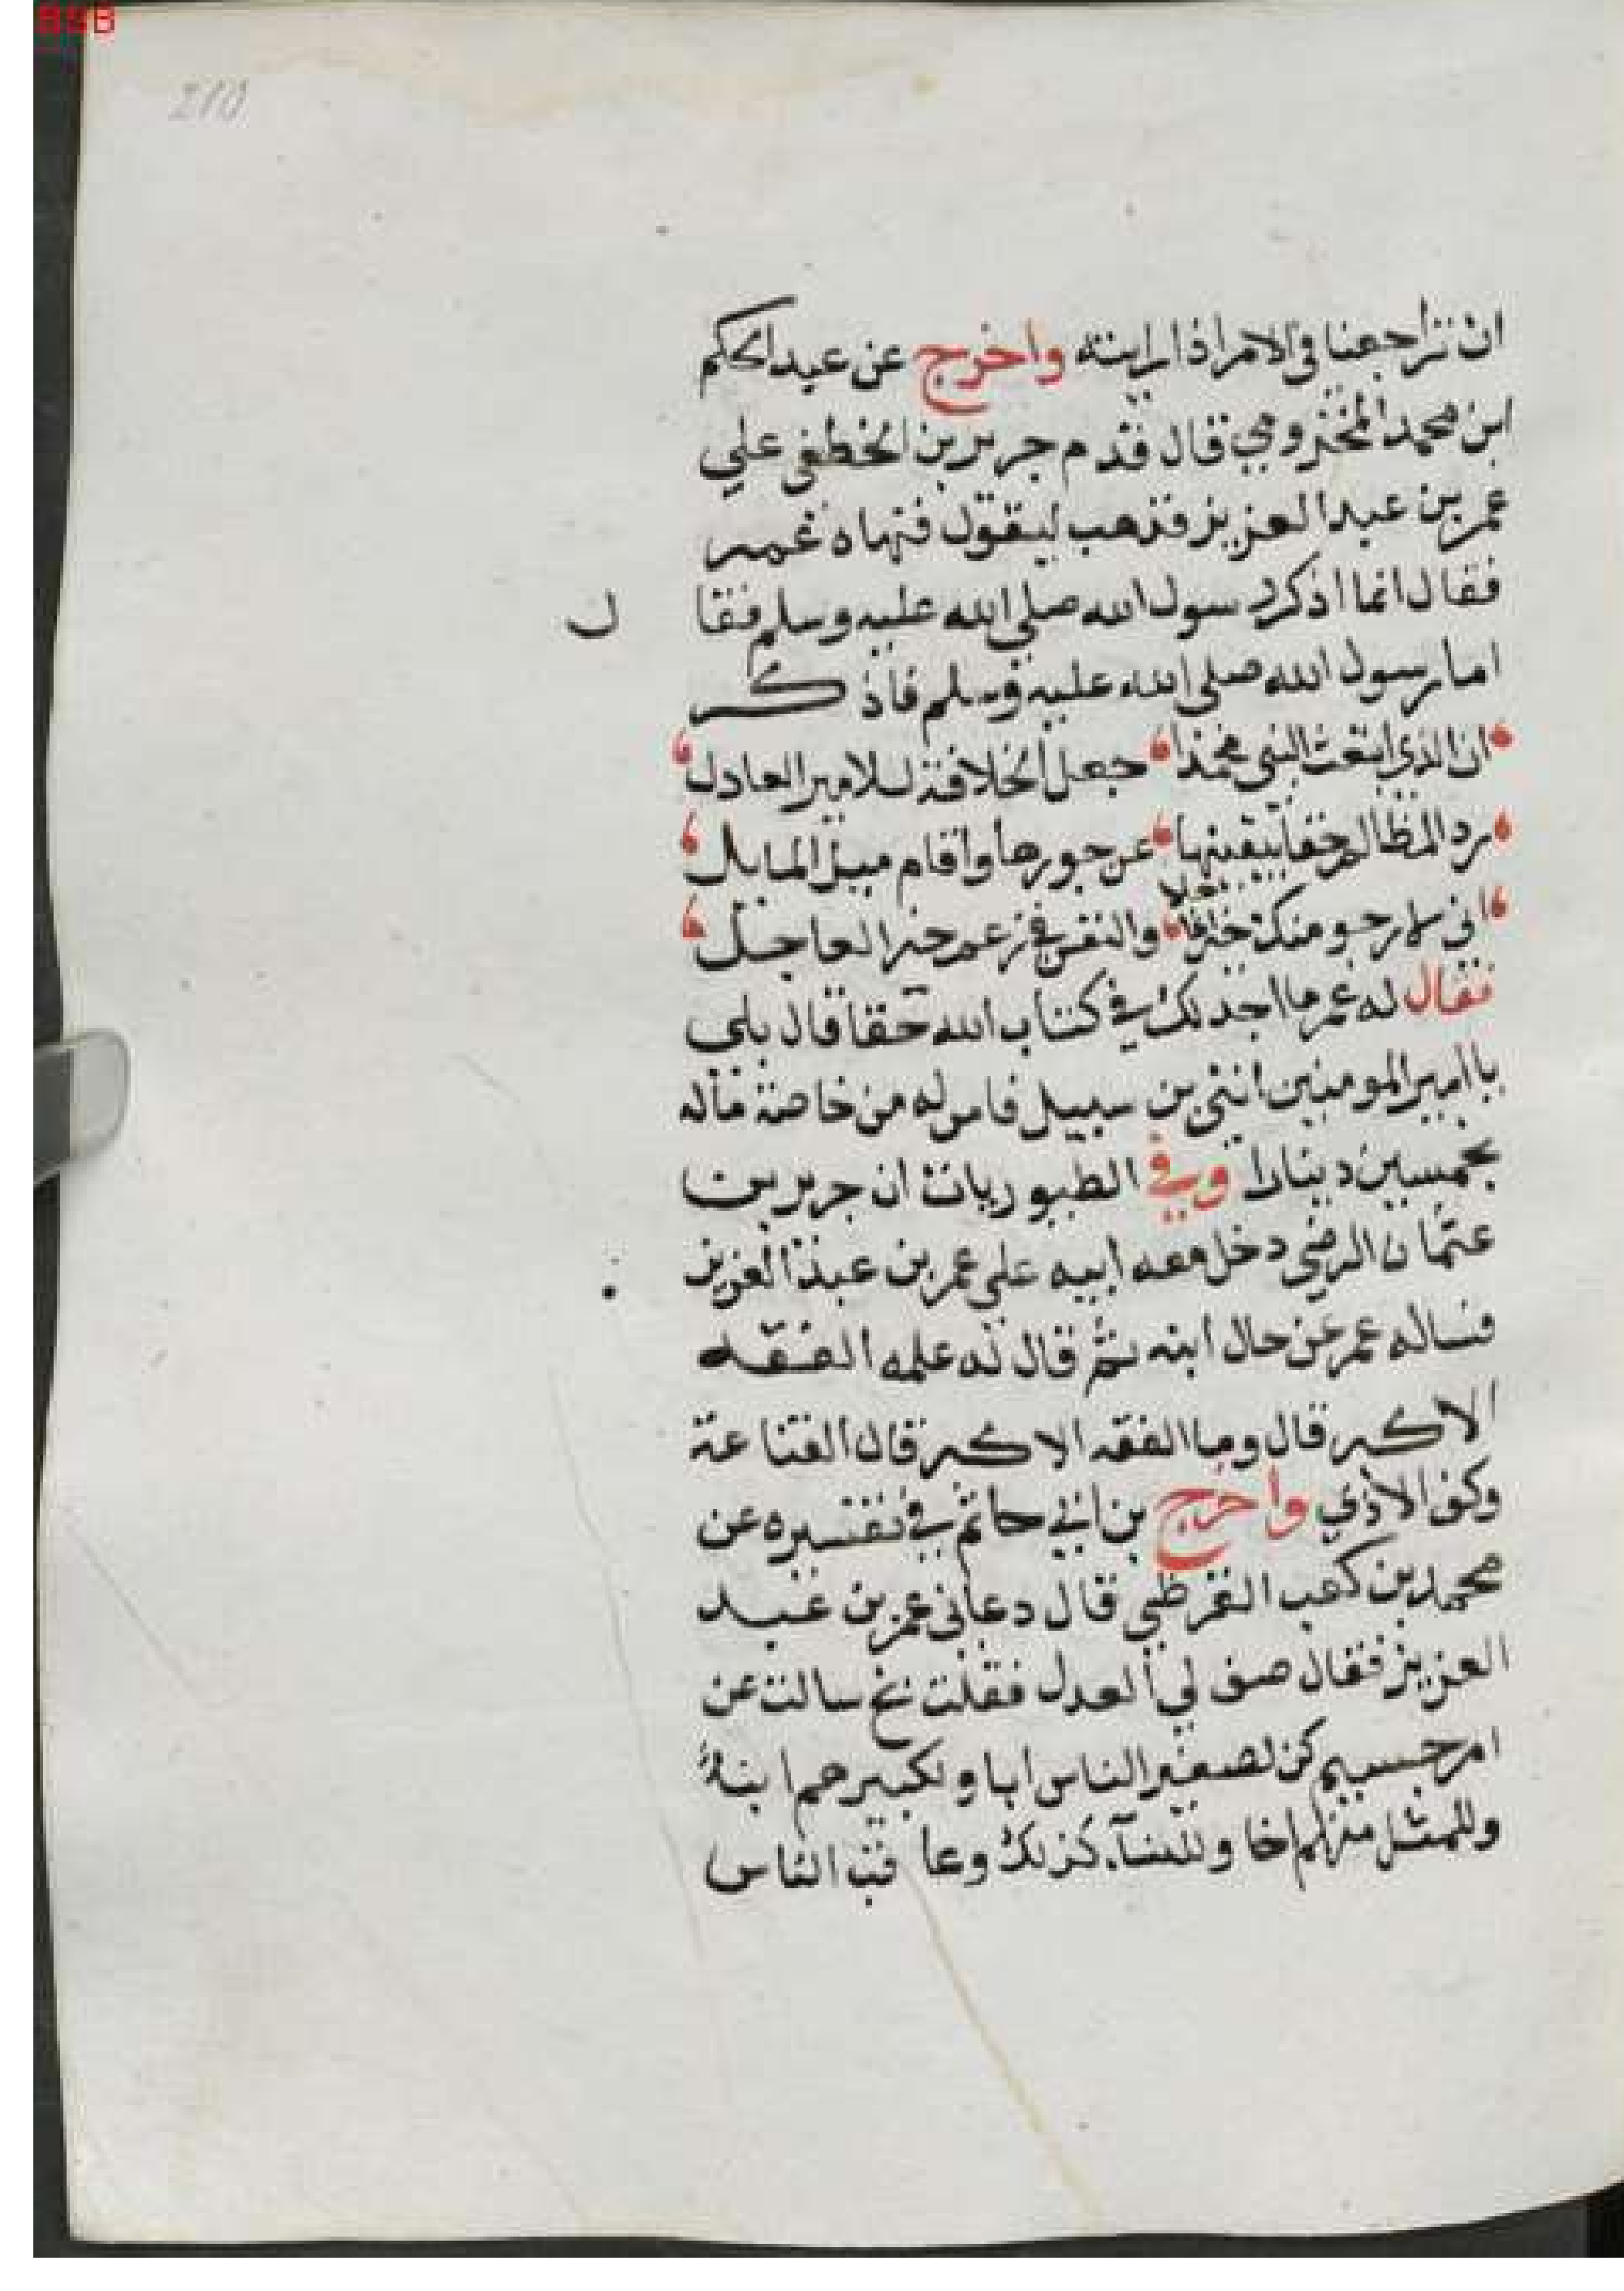 BSB
210
ان تراجعنا في الامر اذا رايته واخرج عن عبد الحكم
ابن محمد المخزومي قال قدم جرير بن الخطفى علي
عمر بن عبد العزيز فذهب ليقول فنهاه عمر
فقال انما اذكر رسول الله صلي الله عليه وسلم فقال
اما رسول الله صلي الله عليه وسلم فاذكر
ان الذي ابتعث النبي محمدا جعل الخلافة للامير العادل
رد المظالم حقا بيقينها عن جورها واقام ميل المايل
اني لارجو منك خيرا والنفس في زعم خير العاجل
فقال له عمر ما اجد لك في كتاب الله حقا قال بلي
يا امير المومنين انني بن سبيل فامر له من خاصة ماله
بخمسين دينارا وفي الطيوريات ان جرير بن
عثمان الرضي دخل معه ابيه علي عمر بن عبد العزيز
فساله عمر عن حال ابنه ثم قال له علمه الفقه
الاكبر قال وما الفقه الاكبر قال القناعة
وكف الاذي واخرج بن ابي حاتم في تفسيره عن
محمد بن كعب القرظي قال دعاني عمر بن عبد
العزيز فقال صف لي العدل فقلت بخ سالت عن
امر جسيم كن لصغير الناس ابا ولكبيرهم ابنا
وللمثل منهم اخا وللنسآء كذلك وعاقب الناس